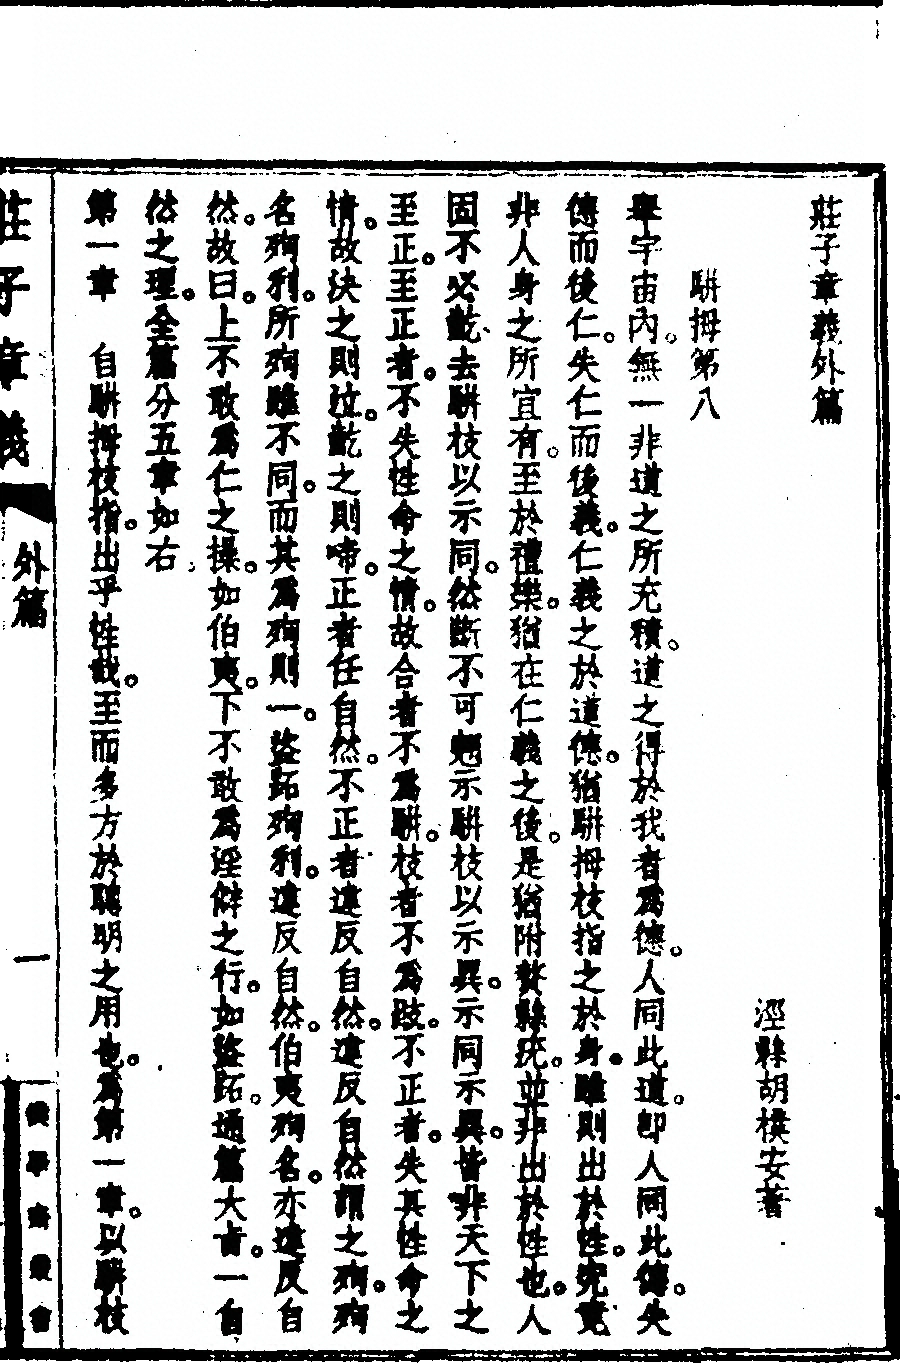 莊子章義外篇
涇縣胡樸安著
駢拇第八
舉宇宙內。無一非道之所充積。道之得於我者爲德。人同此道。卽人同此德。失
德而後仁。失仁而後義。仁義之於道德。猶駢拇枝指之於身。雖則出於性。究竟
非人身之所宜有。至於禮樂。猶在仁義之後。是猶附贅縣疣。並非出於性也。人
固不必齕去駢枝以示同。然斷不可翹示駢枝以示異。示同示異。皆非天下之
至正。至正者。不失性命之情。故合者不爲駢。枝者不爲跂。不正者。失其性命之
情。故決之則泣。齕之則啼。正者任自然。不正者違反自然。違反自然謂之殉。殉
名殉利。所殉雖不同。而其爲殉則一。盜跖殉利。違反自然。伯夷殉名。亦違反自
然。故曰。上不敢爲仁之操。如伯夷。下不敢爲淫僻之行。如盜跖。通篇大旨。一自
然之理。全篇分五章如右。
第一章　自駢拇枝指。出乎性哉。至而多方於聰明之用也。爲第一章。以駢枝
莊子章義
外篇
一
樸學齋叢書